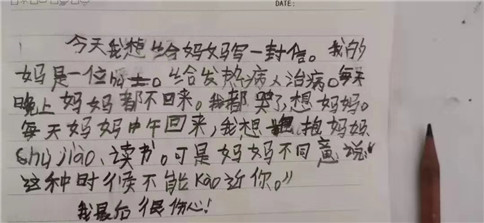 DATE:
今天我想给妈妈写一封信。我的
妈是一位医士。给发热病人治病。每天
晚上妈妈都不回来。我都哭了想妈妈。
每天妈妈中午回来，我想抱妈妈
shujiao、读书。可是妈妈不同意说“
这种时候不能kao近你。”
我最后很伤心！